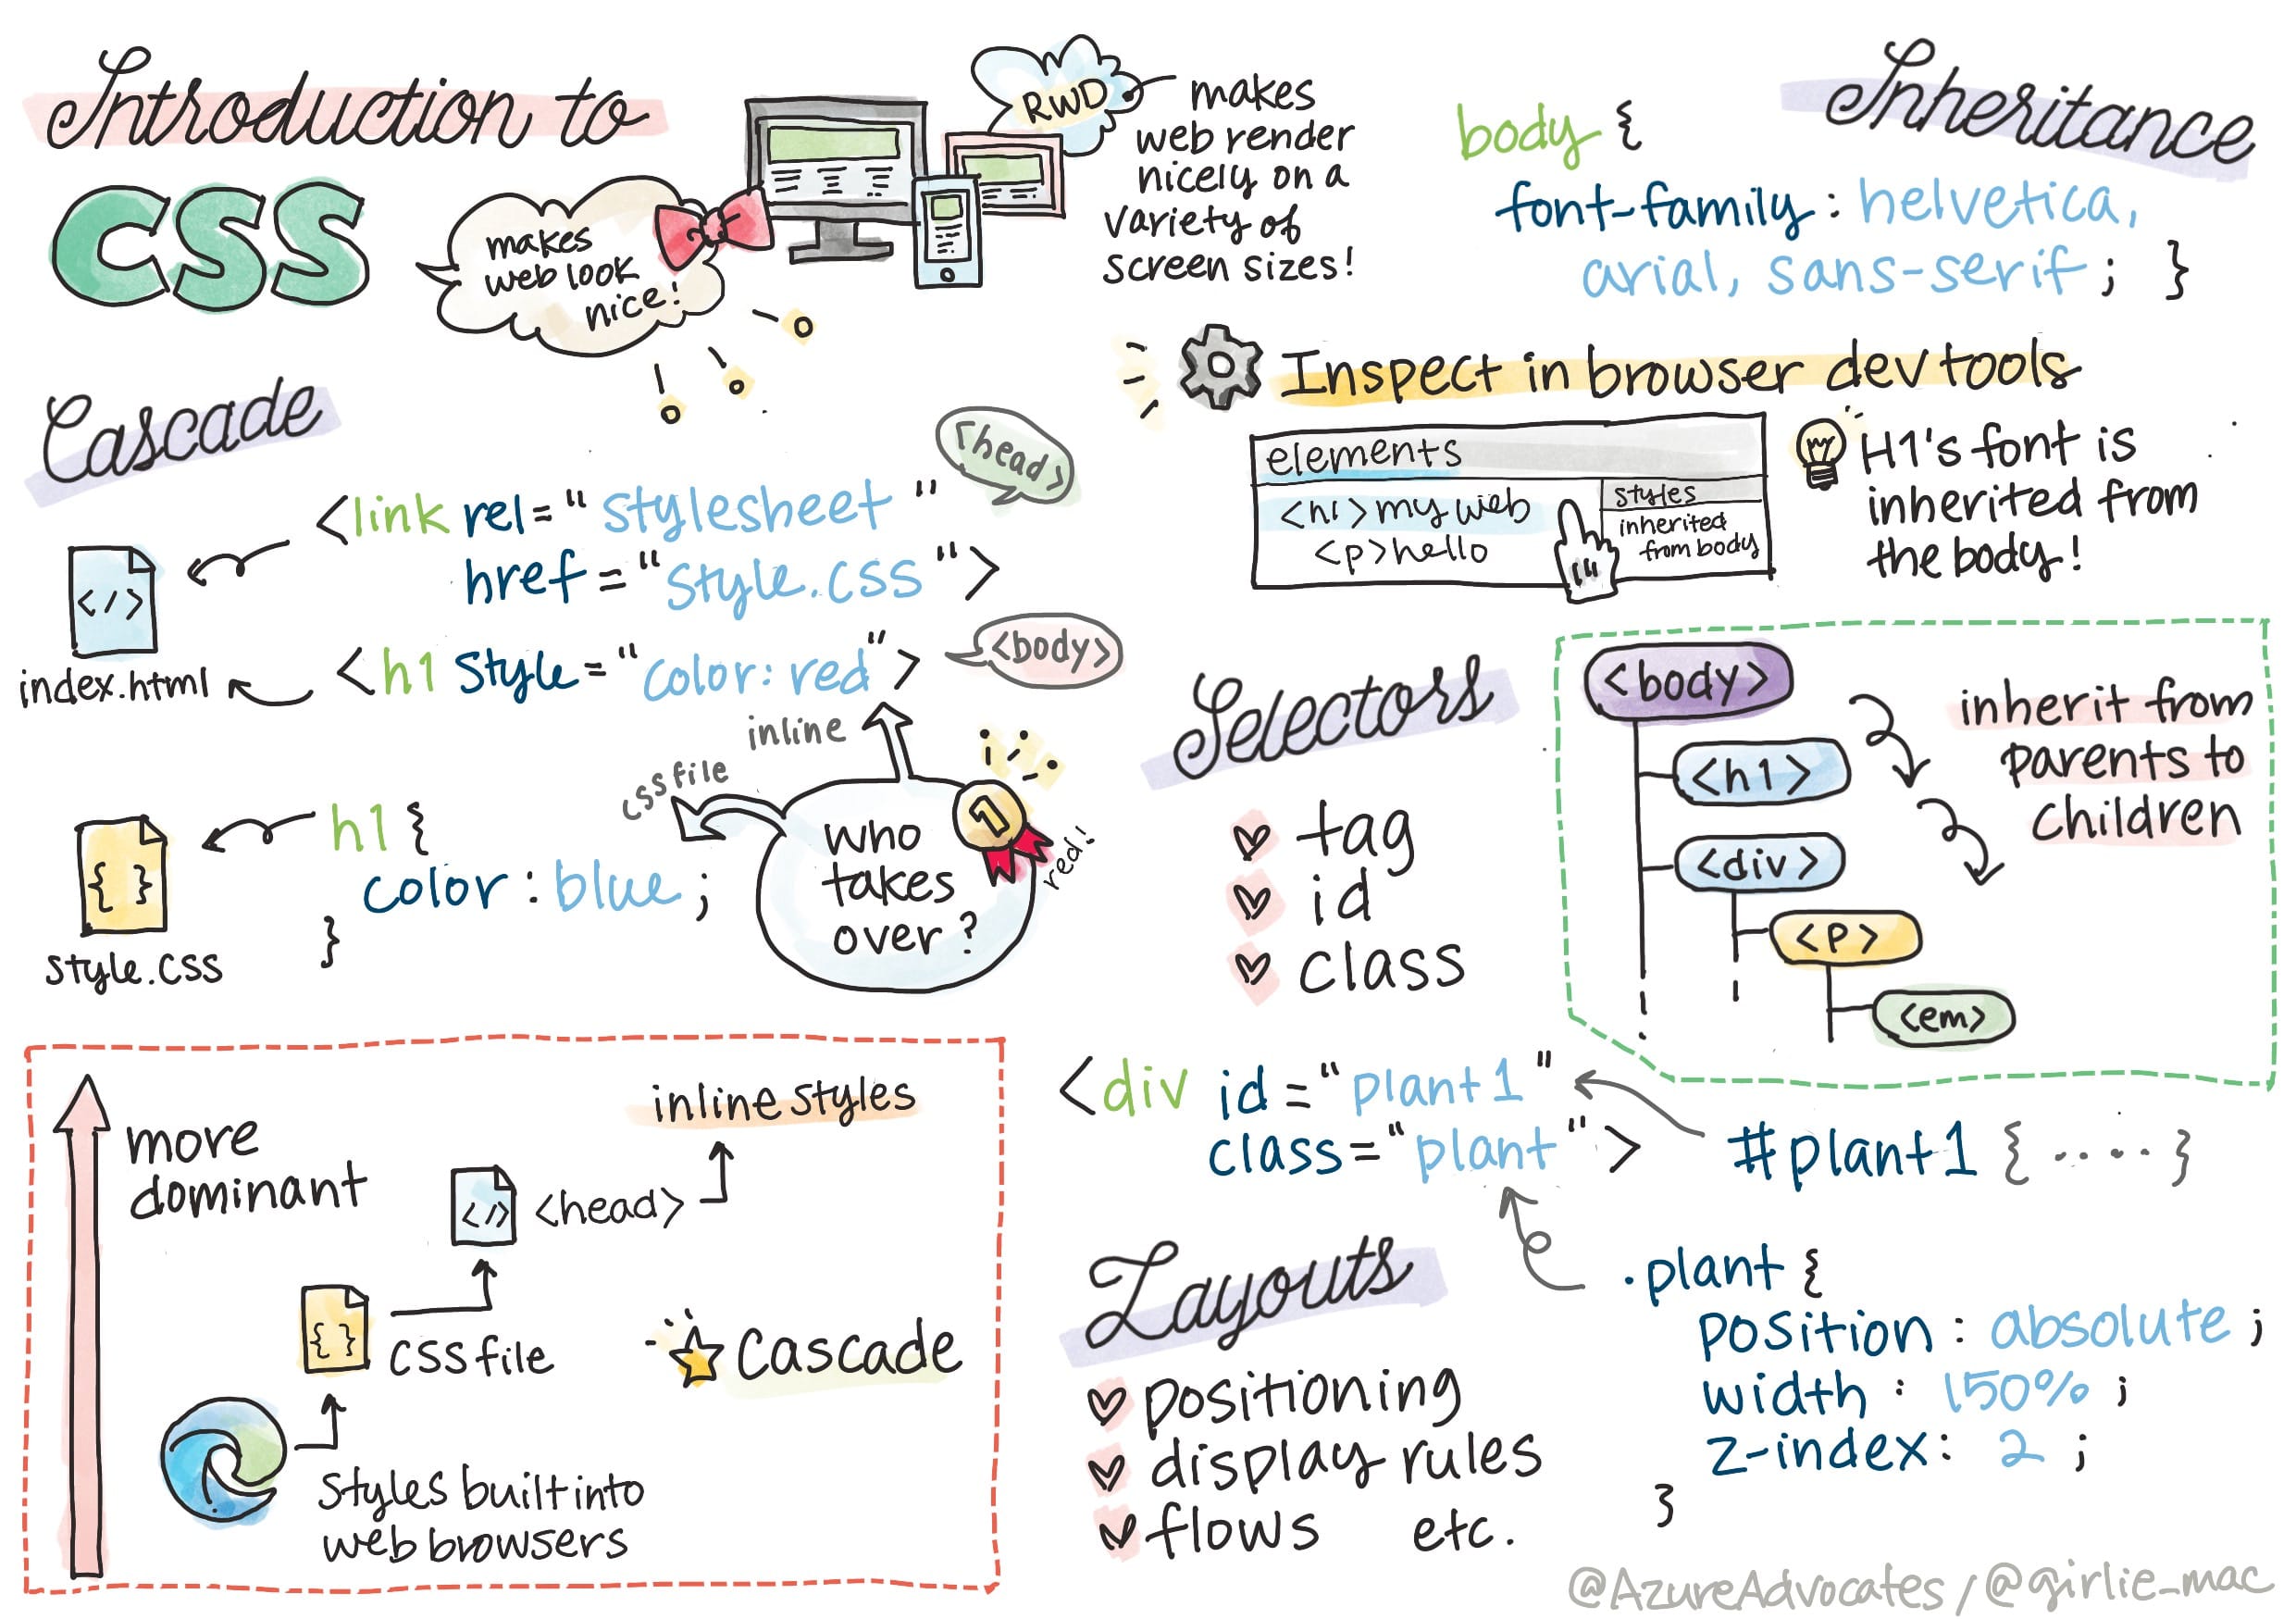 Introduction to
CSS
makes
web look
nice!
RWD
makes
web render
nicely on a
variety of
screen sizes!
Cascade
<head>
<link rel="stylesheet"
href="style.css">
</>
index.html
<h1 style="color: red">
<body>
inline
css file
who
takes
over?
1
red!
h1 {
color: blue;
}
{ }
style.css
more
dominant
inline styles
</>
<head>
{ }
css file
Cascade
styles built into
web browsers
Inheritance
body {
font-family: helvetica,
arial, sans-serif; }
Inspect in browser dev tools
elements
<h1>my web
<p>hello
styles
inherited
from body
H1's font is
inherited from
the body!
Selectors
tag
id
class
<body>
<h1>
<div>
<p>
<em>
inherit from
parents to
children
<div id="plant1"
class="plant">
#plant1 {....}
.plant {
position: absolute;
width: 150%;
z-index: 2;
}
Layouts
positioning
display rules
flows etc.
@AzureAdvocates/@girlie_mac